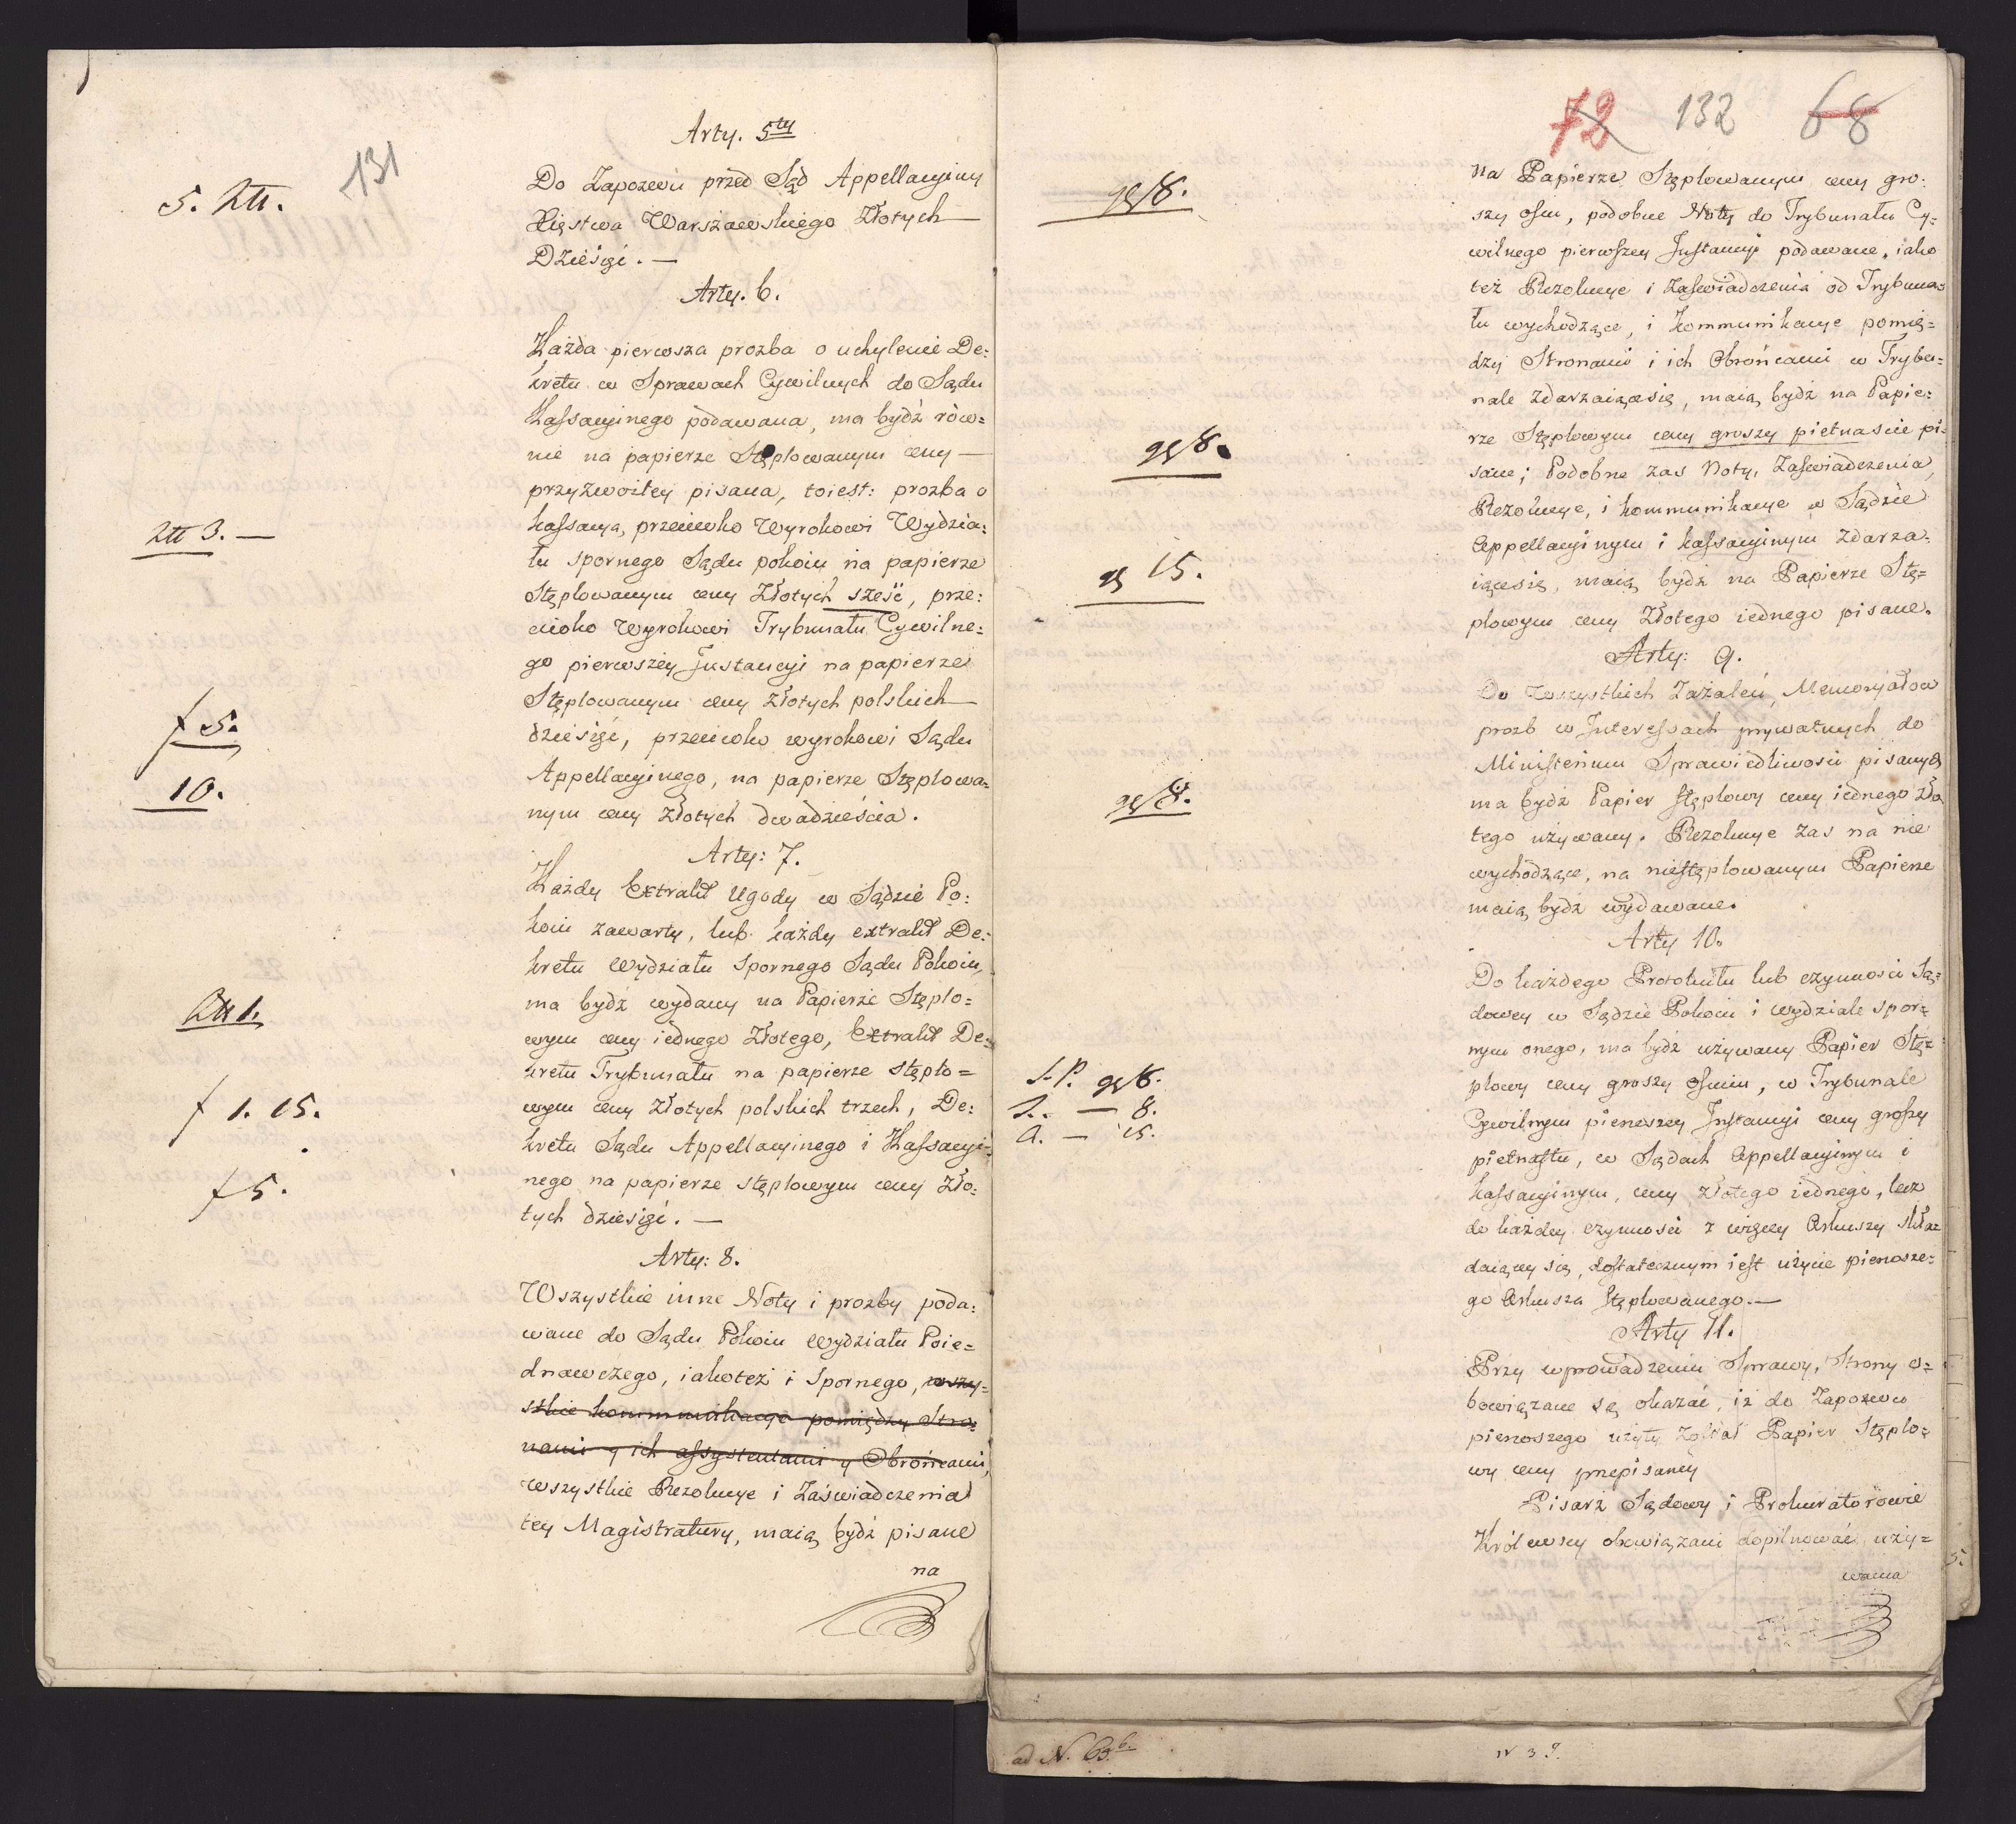 131
5. Ztt.
Ztt 3. —
f 5.
10.
Ztt 1.
f 1. 15.
f 5.
Arty. 5ty
Do Zapozewu przed Sąd Appellacyiny
Xięstwa Warszawskiego Złotych —
Dziesięć. —
Arty. 6.
Każda pierwsza prozba o uchylenie De:
kretu w Sprawach Cywilnych do Sądu
Kassacyinego podawana, ma bydź rów=
nie na papierze Stęplowanym ceny —
przyzwoitey pisana, toiest: prozba o
kassacyą, przeciwko Wyrokowi Wydzia:
łu spornego Sądu pokoiu na papierze
Stęplowanym ceny Złotych sześć, prze:
ciwko Wyrokowi Trybunału Cywilne:
go pierwszey Instancyi na papierze
Stęplowanym ceny złotych polskich —
dziesięć, przeciwko wyrokowi Sądu
Appellacyinego, na papierze Stęplowa=
nym ceny złotych dwadzieścia.
Arty: 7.
Każdy Extrakt Ugody w Sądzie Po:
koiu zawarty, lub każdy extrakt De:
kretu Wydziału Spornego Sądu Pokoiu,
ma bydź wydany na Papierze Stęplo=
wym ceny iednego Złotego, Extrakt De=
kretu Trybunału na papierze stęplo=
wym ceny złotych polskich trzech, De:
kretu Sądu Appellacyinego i Kassacyi=
nego na papierze stęplowym ceny zło:
tych dziesięć. —
Arty: 8.
Wszystkie inne Noty i prozby poda:
wane do Sądu Pokoiu Wydziału Poie=
dnawczego, iakoteż i Spornego, wszy=
stkie kommunikacye pomiędzy Stro:
nami y ich assystentami y Obrońcami,
wszystkie Rezolucye i Zaświadczenia
tey Magistratury, maią bydź pisane
na
72 132 68
gr 8.
gr 8.
gr 15.
gr 8.
S. P. gr 8.
— 8.
A. — 15.
na Papierze Stęplowanym ceny gro:
szy osm, podobne Noty do Trybunału Cy=
wilnego pierwszey Instancyi podawane, iako
też Rezolucye i Zaświadczenia od Trybuna=
łu wychodzące, i kommunikacye pomię=
dzy Stronami i ich Obrońcami w Trybu=
nale zdarzaiącesię, maią bydź na Papie:
rze Stęplowym ceny groszy piętnaście pi=
sane; Podobne zas Noty, Zaświadczenia,
Rezolucye, i kommunikacye w Sądzie
Appellacyinym i kassacyinym zdarza=
iącesię, maią bydź na Papierze Stę=
plowym ceny Złotego iednego pisane.
Arty: 9.
Do wszystkich Zażaleń, Memoryałow
prozb w Interessach prywatnych do
Ministerium Sprawiedliwości pisanych
ma bydź Papier stęplowy ceny iednego Zło
tego używany. Rezolucye zas na nie
wychodzące, na niestęplowanym Papierze
maią bydź wydawane.
Arty 10.
Do każdego Protokułu lub czynności Są=
dowey w Sądzie Pokoiu i wydziale spor=
nym onego, ma bydź używany Papier Stę=
plowy ceny groszy osmiu, w Trybunale
Cywilnym pierwszey Instancyi ceny groszy
piętnastu, w Sądach Appellacyinym i
kassacyinym, ceny złotego iednego, lecz
do każdey czynności z więcey Arkuszy skła=
daiącey się, dostatecznym iest użycie pierwsze=
go Arkusza stęplowanego. —
Arty 11.
Przy wprowadzeniu Sprawy, Strony o=
bowiązane są okazać, iż do Zapozewu
pierwszego użyty został Papier Stęplo=
wy ceny przepisaney
Pisarz Sądowy i Prokuratorowie
Królewscy obowiązani dopilnować uży=
wania
ad N. 63 b.
N 39.